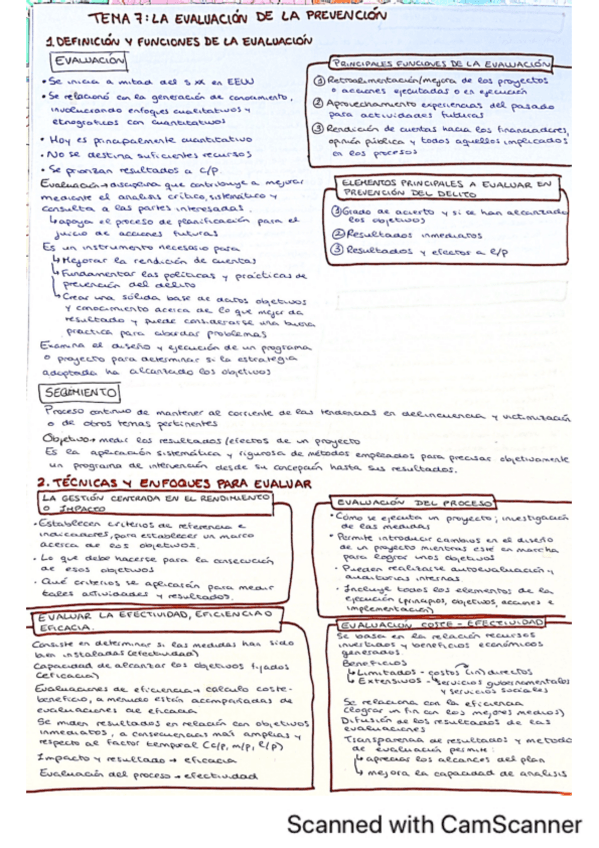 TEMA 7: LA EVALUACIÓN DE LA PREVENCIÓN
1. DEFINICIÓN Y FUNCIONES DE LA EVALUACIÓN
EVALUACIÓN
• Se inicia a mitad del s.XX en EEUU
• Se relacionó con la generación de conocimiento,
involucrando enfoques cualitativos y
etnográficos con cuantitativos
• Hoy es principalmente cuantitativo
• No se destina suficientes recursos
• Se priorizan resultados a c/p
Evaluación → disciplina que contribuye a mejorar
mediante el análisis crítico, sistemático y
consulta a las partes interesadas
↳ apoya el proceso de planificación para el
juicio de acciones futuras
Es un instrumento necesario para
↳ Mejorar la rendición de cuentas
↳ Fundamentar las políticas y prácticas de
prevención del delito
↳ Crear una sólida base de datos objetivos
y conocimiento acerca de lo que mejor da
resultado y puede considerarse una buena
práctica para abordar problemas
Examina el diseño y ejecución de un programa
o proyecto para determinar si la estrategia
adoptada ha alcanzado los objetivos
PRINCIPALES FUNCIONES DE LA EVALUACIÓN
① Retroalimentación/mejora de los proyectos
o acciones ejecutadas o en ejecución
② Aprovechamiento experiencias del pasado
para actividades futuras
③ Rendición de cuentas hacia los financiadores,
opinión pública y todos aquellos implicados
en los procesos
ELEMENTOS PRINCIPALES A EVALUAR EN
PREVENCIÓN DEL DELITO
① Grado de acierto y si se han alcanzado
los objetivos
② Resultados inmediatos
③ Resultados y efectos a l/p
SEGUIMIENTO
Proceso continuo de mantener al corriente de las tendencias en delincuencia y victimización
o de otros temas pertinentes
Objetivo → medir los resultados/efectos de un proyecto
Es la aplicación sistemática y rigurosa de métodos empleados para precisar objetivamente
un programa de intervención desde su concepción hasta sus resultados.
2. TÉCNICAS Y ENFOQUES PARA EVALUAR
LA GESTIÓN CENTRADA EN EL RENDIMIENTO
O IMPACTO
• Establecen criterios de referencia e
indicadores, para establecer un marco
acerca de los objetivos.
• Lo que debe hacerse para la consecución
de esos objetivos
• Qué criterios se aplicarán para medir
tales actividades y resultados.
EVALUACIÓN DEL PROCESO
• Cómo se ejecuta un proyecto; investigación
de las medidas
• Permite introducir cambios en el diseño
de un proyecto mientras esté en marcha
para lograr unos objetivos
• Pueden realizarse autoevaluación y
auditorías internas.
• Incluye todos los elementos de la
ejecución (principios, objetivos, acciones e
implementación)
EVALUAR LA EFECTIVIDAD, EFICIENCIA O
EFICACIA.
Consiste en determinar si las medidas han sido
bien instaladas (efectividad)
Capacidad de alcanzar los objetivos fijados
(eficacia)
Evaluaciones de eficiencia → cálculo coste-
beneficio, a menudo están acompañadas de
evaluaciones de eficacia
Se miden resultados en relación con objetivos
inmediatos, a consecuencias más amplias y
respecto al factor temporal (c/p, m/p, l/p)
Impacto y resultado → eficacia
Evaluación del proceso → efectividad
EVALUACIÓN COSTE - EFECTIVIDAD
Se basa en la relación recursos
invertidos y beneficios económicos
generados.
Beneficios
↳ Limitados - costos (in)directos
↳ Extensivos - servicios gubernamentales
y servicios sociales
Se relaciona con la eficiencia
(lograr un fin con los mejores medios)
Difusión de los resultados de las
evaluaciones
Transparencia de resultados y método
de evaluación permite:
↳ apreciar los alcances del plan
↳ mejora la capacidad de análisis
Scanned with CamScanner